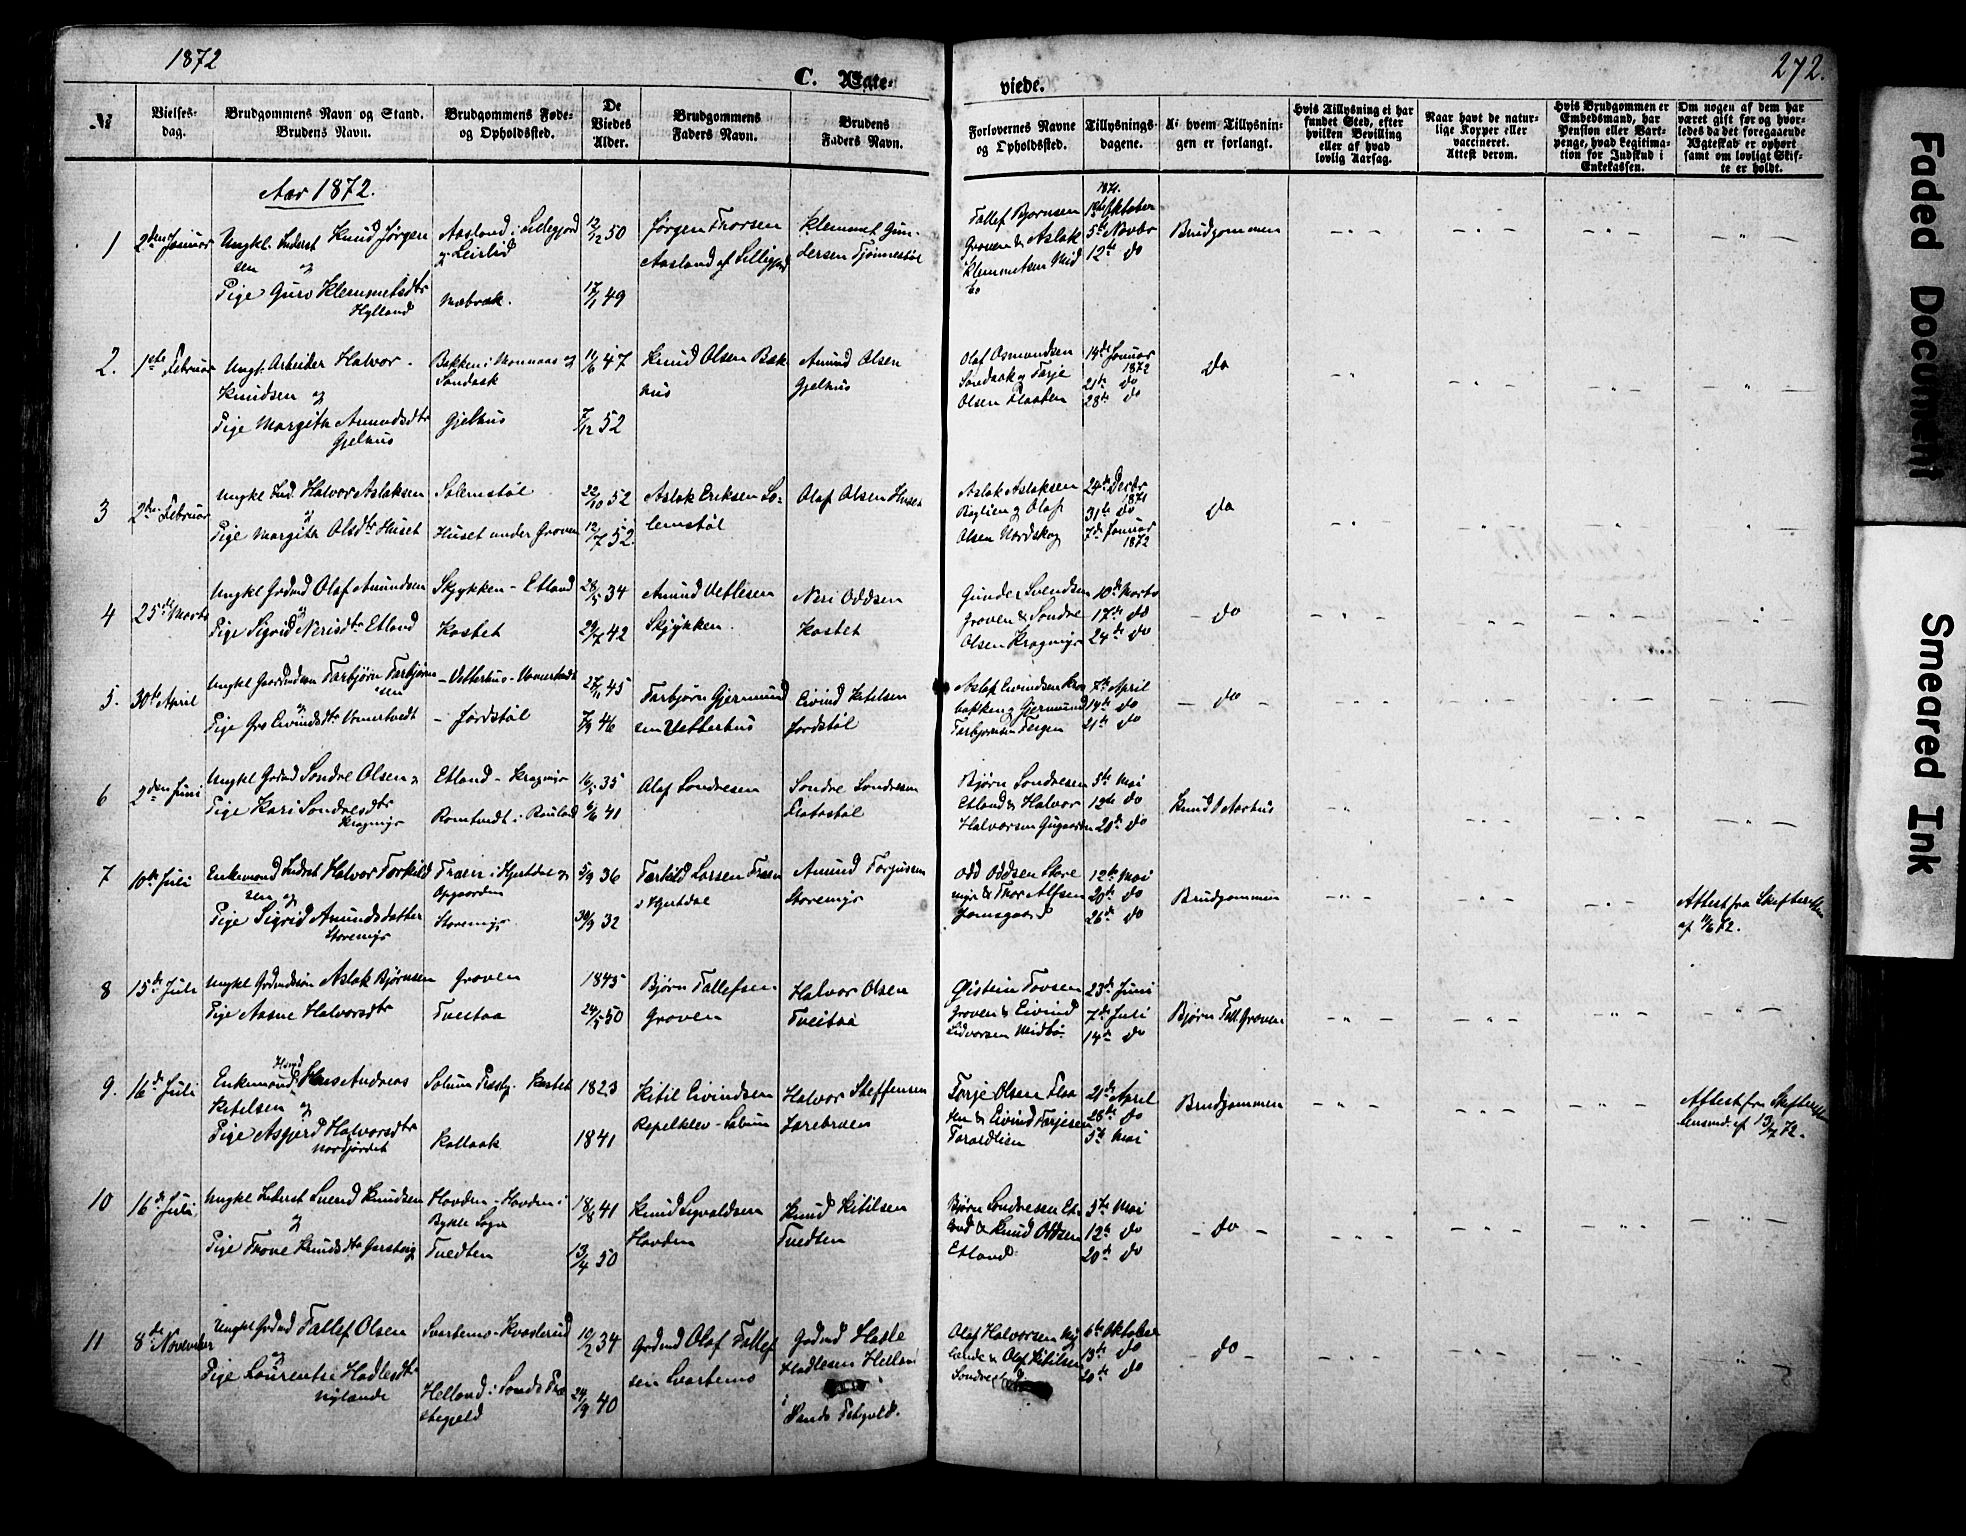 1872
C. Egte-
viede.
272.
№
Vielses-
dag.
Brudgommens Navn og Stand.
Brudens Navn.
Brudgommens Føde-
og Opholdssted.
De
Viedes
Alder.
Brudgommens
Faders Navn.
Brudens
Faders Navn.
Forlovernes Navne
og Opholdssted.
Tillysnings-
dagene.
Af hvem Tillysnin-
gen er forlangt.
Hvis Tillysning ei har
fundet Sted, efter
hvilken Bevilling
eller af hvad
lovlig Aarsag.
Naar havt de natur-
lige Kopper eller
vaccineret.
Attest derom.
Hvis Brudgommen er
Embedsmand, har
Pension eller Vart-
penge, hvad Legitima-
tion for Indskud i
Enkekassen.
Om nogen af dem har
været gift før og hvor-
ledes da det foregaaende
Ægteskab er ophørt
samt om lovligt Skif-
te er holdt.
Aar 1872.
1
2den Januar
Ungkl. Inderst Knud Jørgen
sen og
Pige Guro Klemmetsdtr
Hylland
Aasland i Sillegjord
og Leirlid
Næbræk.
12/12 50
17/1 49
Jørgen Thorsen
Aasland af Sillegjord
Klemmet Gun-
dersen Tjønnestøl
Tallef Bjørnsen
Groven & Aslak
Klemmetsen Mid
bø
1871.
Oktober
5te Novbr
12te do
Brudgommen
2.
1ste Februar
Ungk. Arbeider Halvor
Knudsen og
Pige Margith Amundsdtr
Gjelhus
Bakken i Mannaas og
Sandaak
Gjelhus
11/6 47
7/12 52
Knud Olsen Bak
Amund Olsen
Gjelhus
Olaf Osmundsen
Sandaak og Tarje
Olsen Flaaten
14de Januar
1872
21de do
28de do
do
3
2den Februar
Ungkl Ind. Halvor Aslaksen
og
Pige Margite Olsdtr Huset
Solemstøl
Huset under Groven
22/10 52
12/7 52.
Aslak Eriksen So-
lemstøl
Olaf Olsen Huset
Aslak Aslaksen
Olaf
Olsen Nordskog
24de Decbr
1871
31te do
7de Januar
1872
do
4
25de Marts
Ungkl Grdmd Olaf Amundsen
og
Pige Sigrid Nerisdtr Etland
Skjykken - Etland
Kostet
28/5 34
29/7 42
Amund Vetlesen
Skjykken.
Neri Oddsen
Kostet
Gunder Svendsen
Groven & Sondre
Olsen Kragmyr
10de Marts
17de do
24de do
do
5.
30te April
Ungkl Gaardmdsøn Tarbjørn Tarbjørn
sen
og
Pige Gro Eivindsdtr Vomertvedt
Vetterhus - Vomertvedt
Jordstøl
27/11 45
7/9 46
Tarbjørn Gjermund
sen Vetterhus
Eivind Ketilsen
Jordstøl
Aslak Eivindsen
Gjermund
Tarbjørnsen
7de April
14de do
21de do
do
6
2den Juni
Ungkl Grdmd Sondre Olsen og
Pige Kari Sondresdtr
Kragmyr
Etland - Kragmyr
Romtvedt i Rauland
16/5 35
6/6 41
Olaf Sondresen
Sondre Sondresen
Bjørn Sondresen
Etland & Halvor
Halvorsen
5te Mai
12te do
20de do
Knud Aarhus
7
10de Juli
Enkemand Inderst Halvor Torkild
sen og
Pige Sigrid Amundsdatter
Storemyr
Traen i Hjertdal og
Opgaarden
Storemyr
5/9 36
30/9 32
Torkild Larsen Traen
i Hjertdal
Amund Torjusen
Storemyr
Odd Oddsen Store
myr & Thor Alfsen
12te Mai
20de do
26de do
Brudgommen
Attest fra Skifteretten
af 11/6 72.
8
15de Juli
Ungkl Grdmdsøn Aslak Bjørnsen
Pige Aasne Halvorsdtr
Groven
Tveitaa
1845
24/5 50
Bjørn Tallefsen
Groven
Halvor Olsen
Tveitaa
Øistein Tovsen
Groven & Eivind
Midbø
23de Juni
7de Juli
14de do
Bjørn Tall. Groven
9.
16de Juli
Enkemand Hans Andreas
Ketelsen og
Pige Asgjerd Halvorsdtr
Nordjordet
Solum Præstg. Kostet
Rollaak
1823
1841
Ketil Eivindsen
Rapelklev - Solum
Halvor Steffensen
Tarje Olsen Flaa
ten & Eivind Tarjesen
Taraldlien
21de April
28de do
5te Mai
Brudgommen
Attest fra Skifteretten
af 13/7 72.
10
16de Juli
Ungkl Inderst Svend Knudsen
og
Pige Tone Knudsdtr
Hovden - Hovden i
Bykle Sogn
Tvedten
18/8 41
13/4 50
Knud Sigvaldsen
Hovden
Knud Ketilsen
Tvedten
Bjørn Sondresen Et-
land & Knud Oddsen
Etland
5te Mai
12te do
20de do
do
11
8de November
Ungkl Grdmd Tallef Olsen
og
Pige Laurentse Hadlesdtr
Nylande
Svartemo - Kvasterud
Helland i Sands Præ
stegjeld
10/2 34
24/9 40
Grdmd Olaf Tallef
sen Svartemo
Grdmd Hadle
Hadlesen Helland
i
Sands Pstgjeld.
Olaf Halvorsen Ny
lande & Olaf Ketilsen
6te Oktober
13de do
20de do
do
Faded Document
Smeared Ink